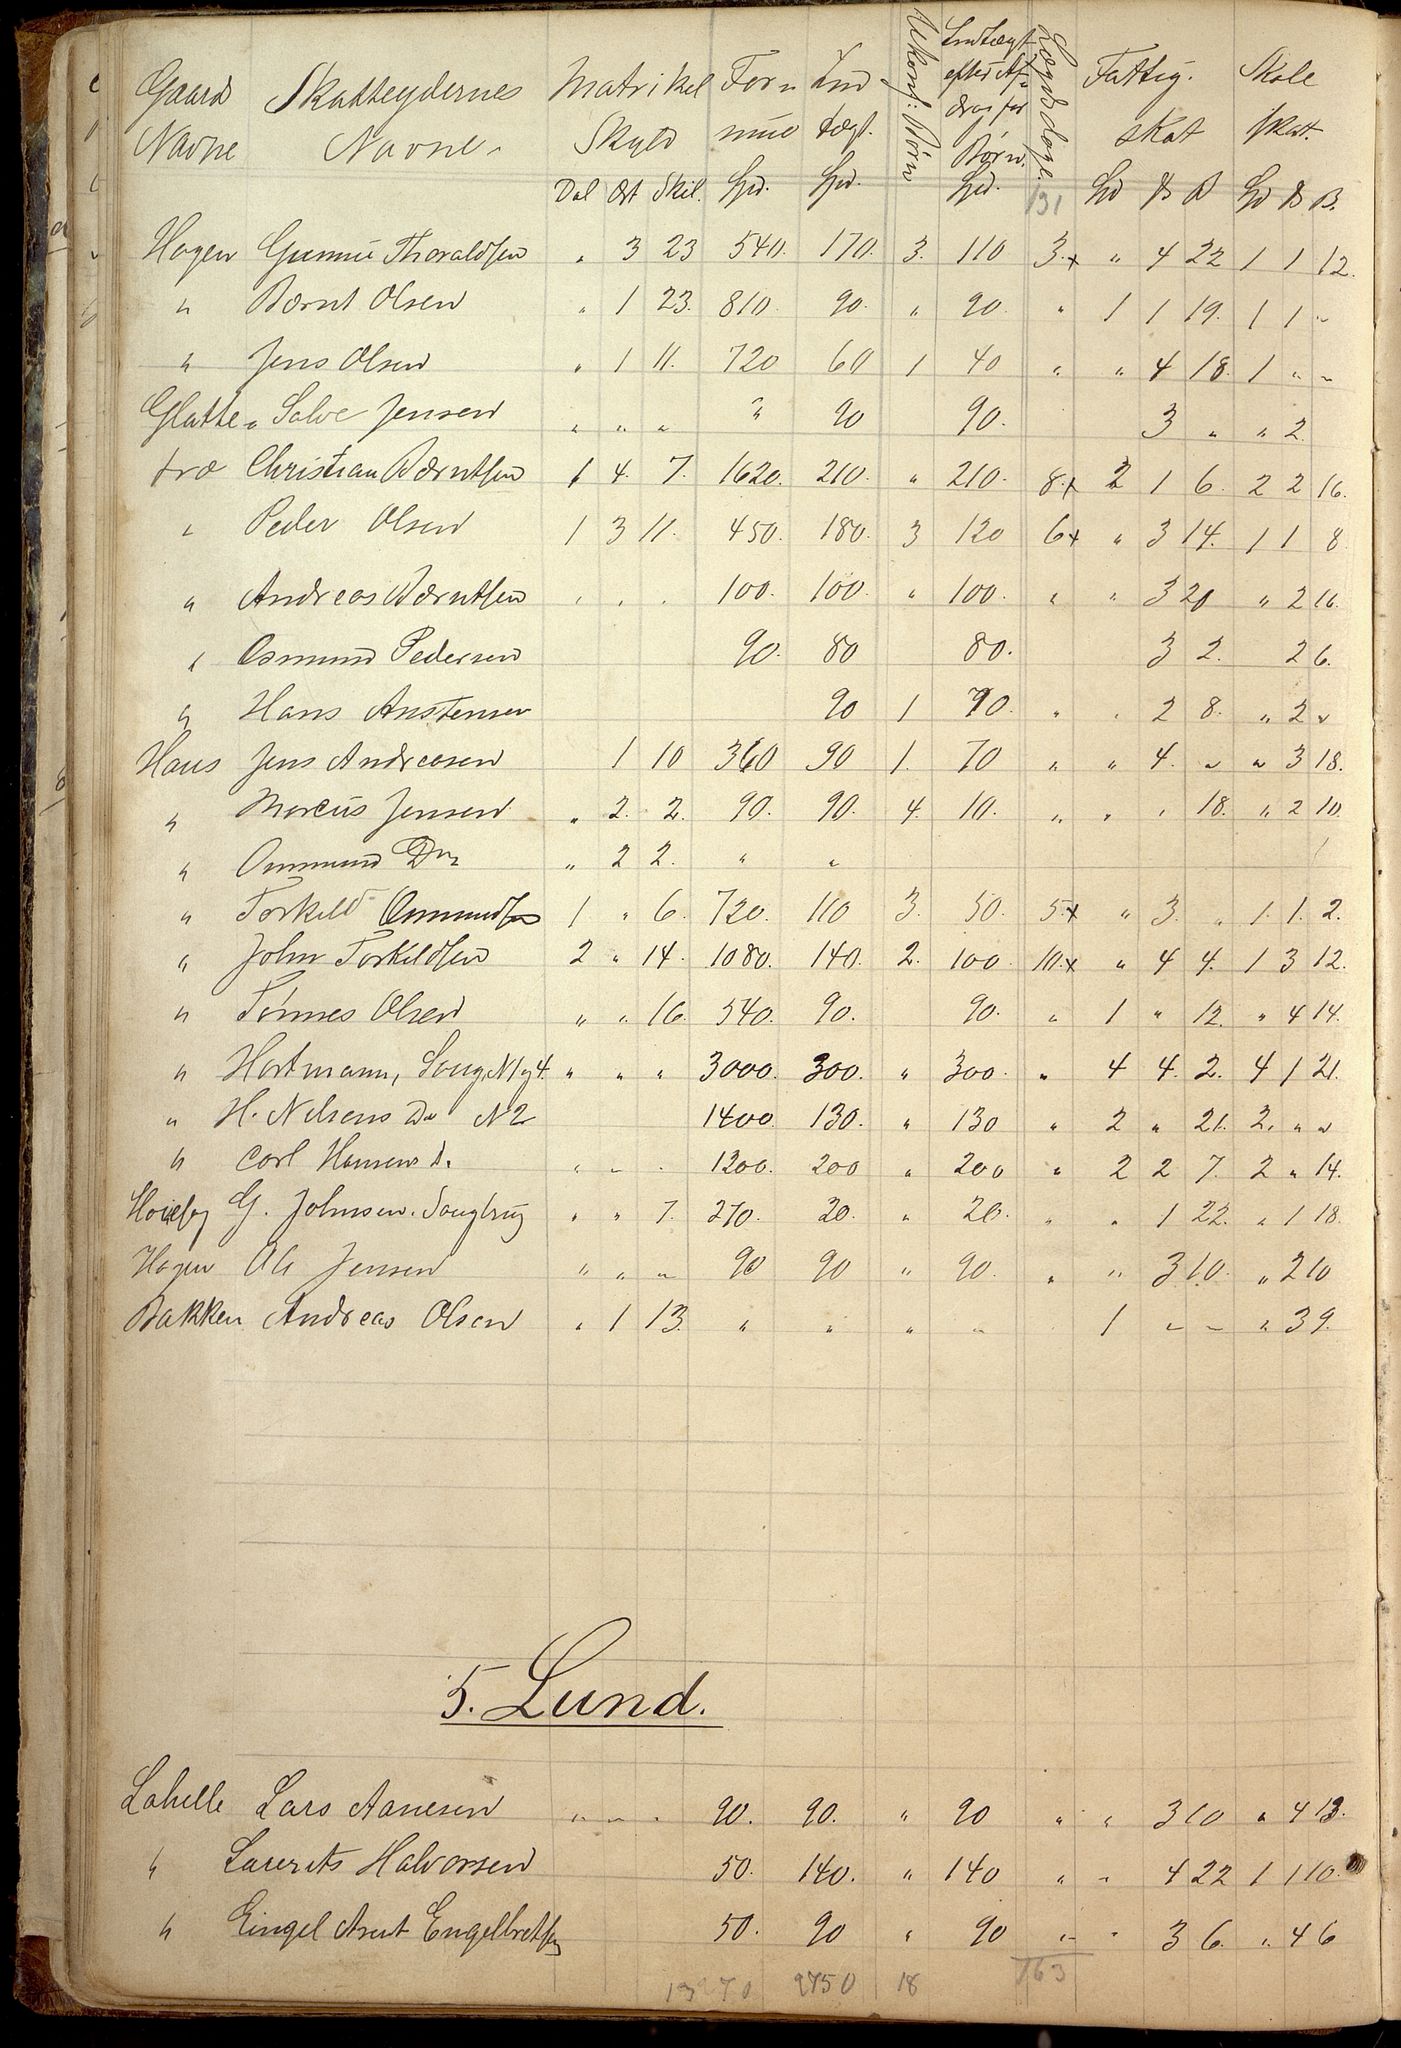 Gaards Navne Skatteydernes Navne Matrikel Skyld Formue Indtægt. Ukonf: Børn Indtægt efter Afdrag for Børn. Lægdsdage. Fattig. skat Skole skat.
Dal Ort Skil. Spd. Spd. Spd. 131 Spd ß Spd ß
Hagen Gunnu Thoraldsen " 3 23 540. 170. 3. 110 3x " 4 22 1 1 12.
" Bernt Olsen " 1 23. 810. 90. " 90. " 1 1 19. 1 1 "
" Jens Olsen " 1 11. 720 60 1 40 " " 4 18. 1 " "
Glatte= Salve Jensen " " " " 90 90. 3 " " 2
træ Christian Berntsen 1 4. 7. 1620. 210. " 210. 8x 2 1 6. 2 2 16.
" Peder Olsen 1 3 11. 450. 180. 3 120 6x " 3 14. 1 1 8
" Andreas Berntsen " " " 100. 100. " 100. " " 3 20 " 2 16.
" Osmund Pedersen 90. 80 80. 3 2. 2 6.
" Hans Anstensen 90 1 70. " " 2 8. " 2 "
Haus Jens Andreasen 1 10 360 90 1. 70 " " 4. " " 3 18.
" Marcus Jensen " 2. 2. 90. 90. 4. 10. " " " 18. " 2 10.
" Ommund Do " 2 2. " "
" Torkild Ommundsen 1 " 6. 720. 110 3. 50. 5x " 3. " 1. 1. 2.
" John Torkildsen 2 " 14. 1080. 140. 2. 100 10.x " 4 4. 1 3 12.
" Tönnes Olsen " " 16. 540. 90. 90. " 1 " 12. " 4 14.
" Hartmann, Saug N 1 og 4. " " " 3000. 300. " 300. " 4 4. 2. 4 1 21.
" H. Nilsens Do N 2 1400. 130. " 130 " 2 " 21. 2. " "
" Carl Hansens d. " " " 1200. 200 " 200 " 2 2 7. 2 " 14.
G. Johnsen. Saugbrug " " 7. 270. 20. " 20. " " 1 22. " 1 18.
Hagen Ole Jensen " " " 90 90 " 90. " " 3 10. " 2 10
Bakken Andreas Olsen " 1 13. " " " " 1 " " " 3 9.
5. Lund.
Lahelle Lars Aanesen " " " 90. 90. " 90 " " 3 10 " 4 13.
" Laurits Halvorsen 50. 140. " 140 " " 4 22 1 1 10.
" Eingel Arnt Engelbretsen 50. 90 " 90 " " 3 6. " 4 6
13270 2750 18 163